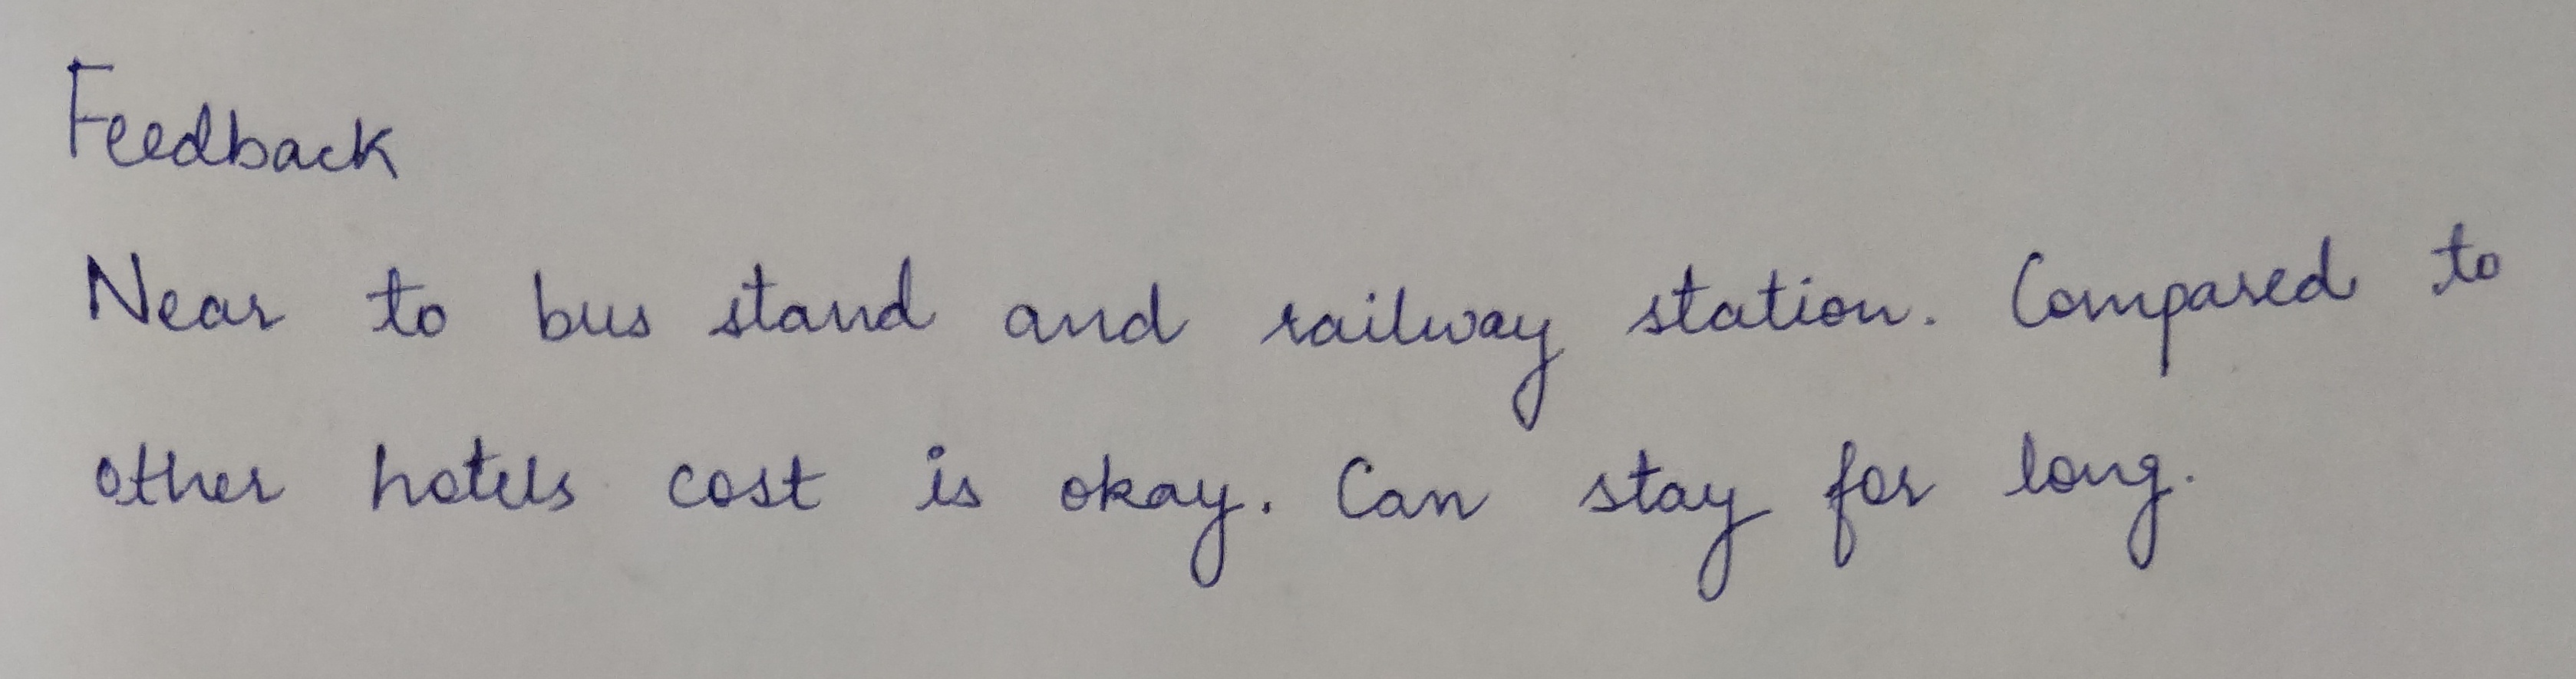 Feedback
Near to bus stand and railway station. Compared to
other hotels cost is okay. Can stay for long.